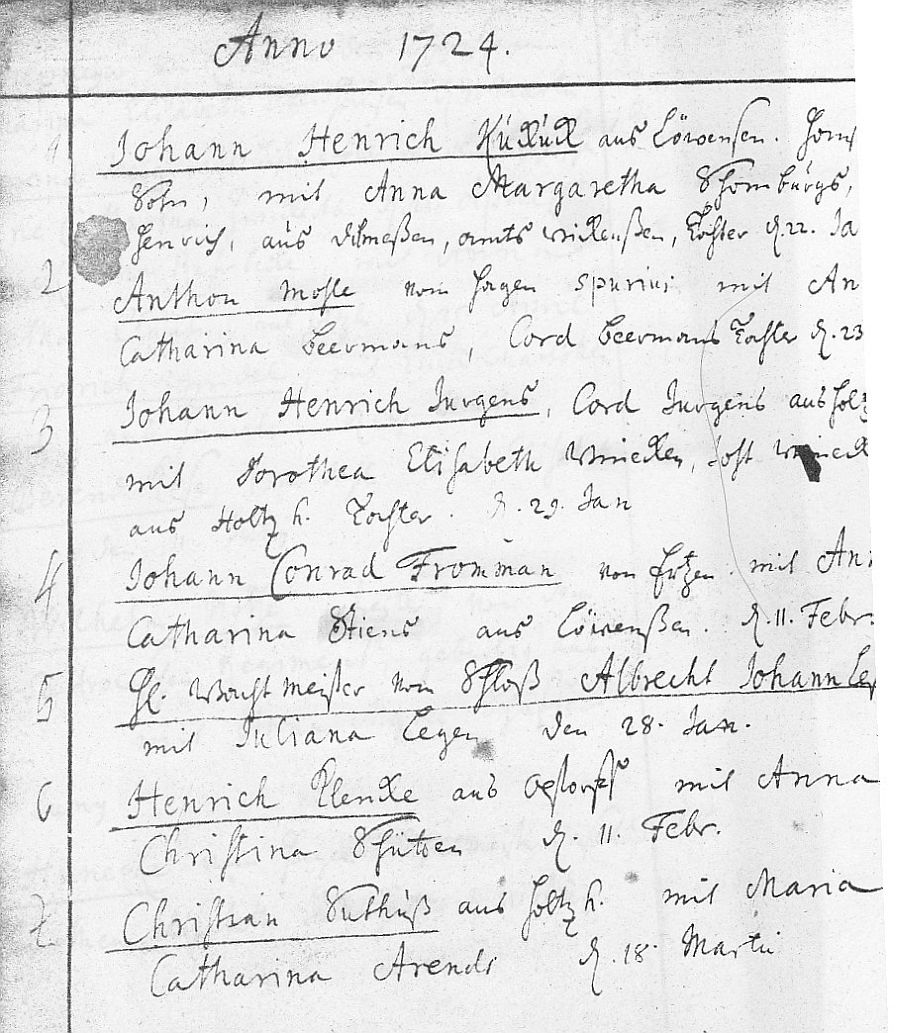 Anno 1724.
1 Johann Henrich Kükük aus Löwensen. Henr
Sohn, mit Anna Margaretha Schomburgs,
Henrich, aus amts Wickenßen, Tochter d. 22. Ja
2 Anthon Mohle vom Hagen spurius mit An
Catharina Beermans, Cord Beermans Tochter d. 23
3 Johann Henrich Jurgens, Cord Jurgens aus Holtz
mit Dorothea Elisabeth Winecken, Jost Wineck
aus Holtzh. Tochter. d. 29. Jan
4 Johann Conrad Fromman von mit Ann
Catharina Stiens aus Löwenßen. d. 11. Febr.
5 H. Wachtmeister vom Schloß Albrecht Johann Le
mit Juliana Legen den 28. Jan.
6 Henrich Plenke aus mit Anna
Christina Schützen d. 11. Febr.
7. Christian Suthuß aus Holtzh. mit Maria
Catharina Arends d. 18. Martii